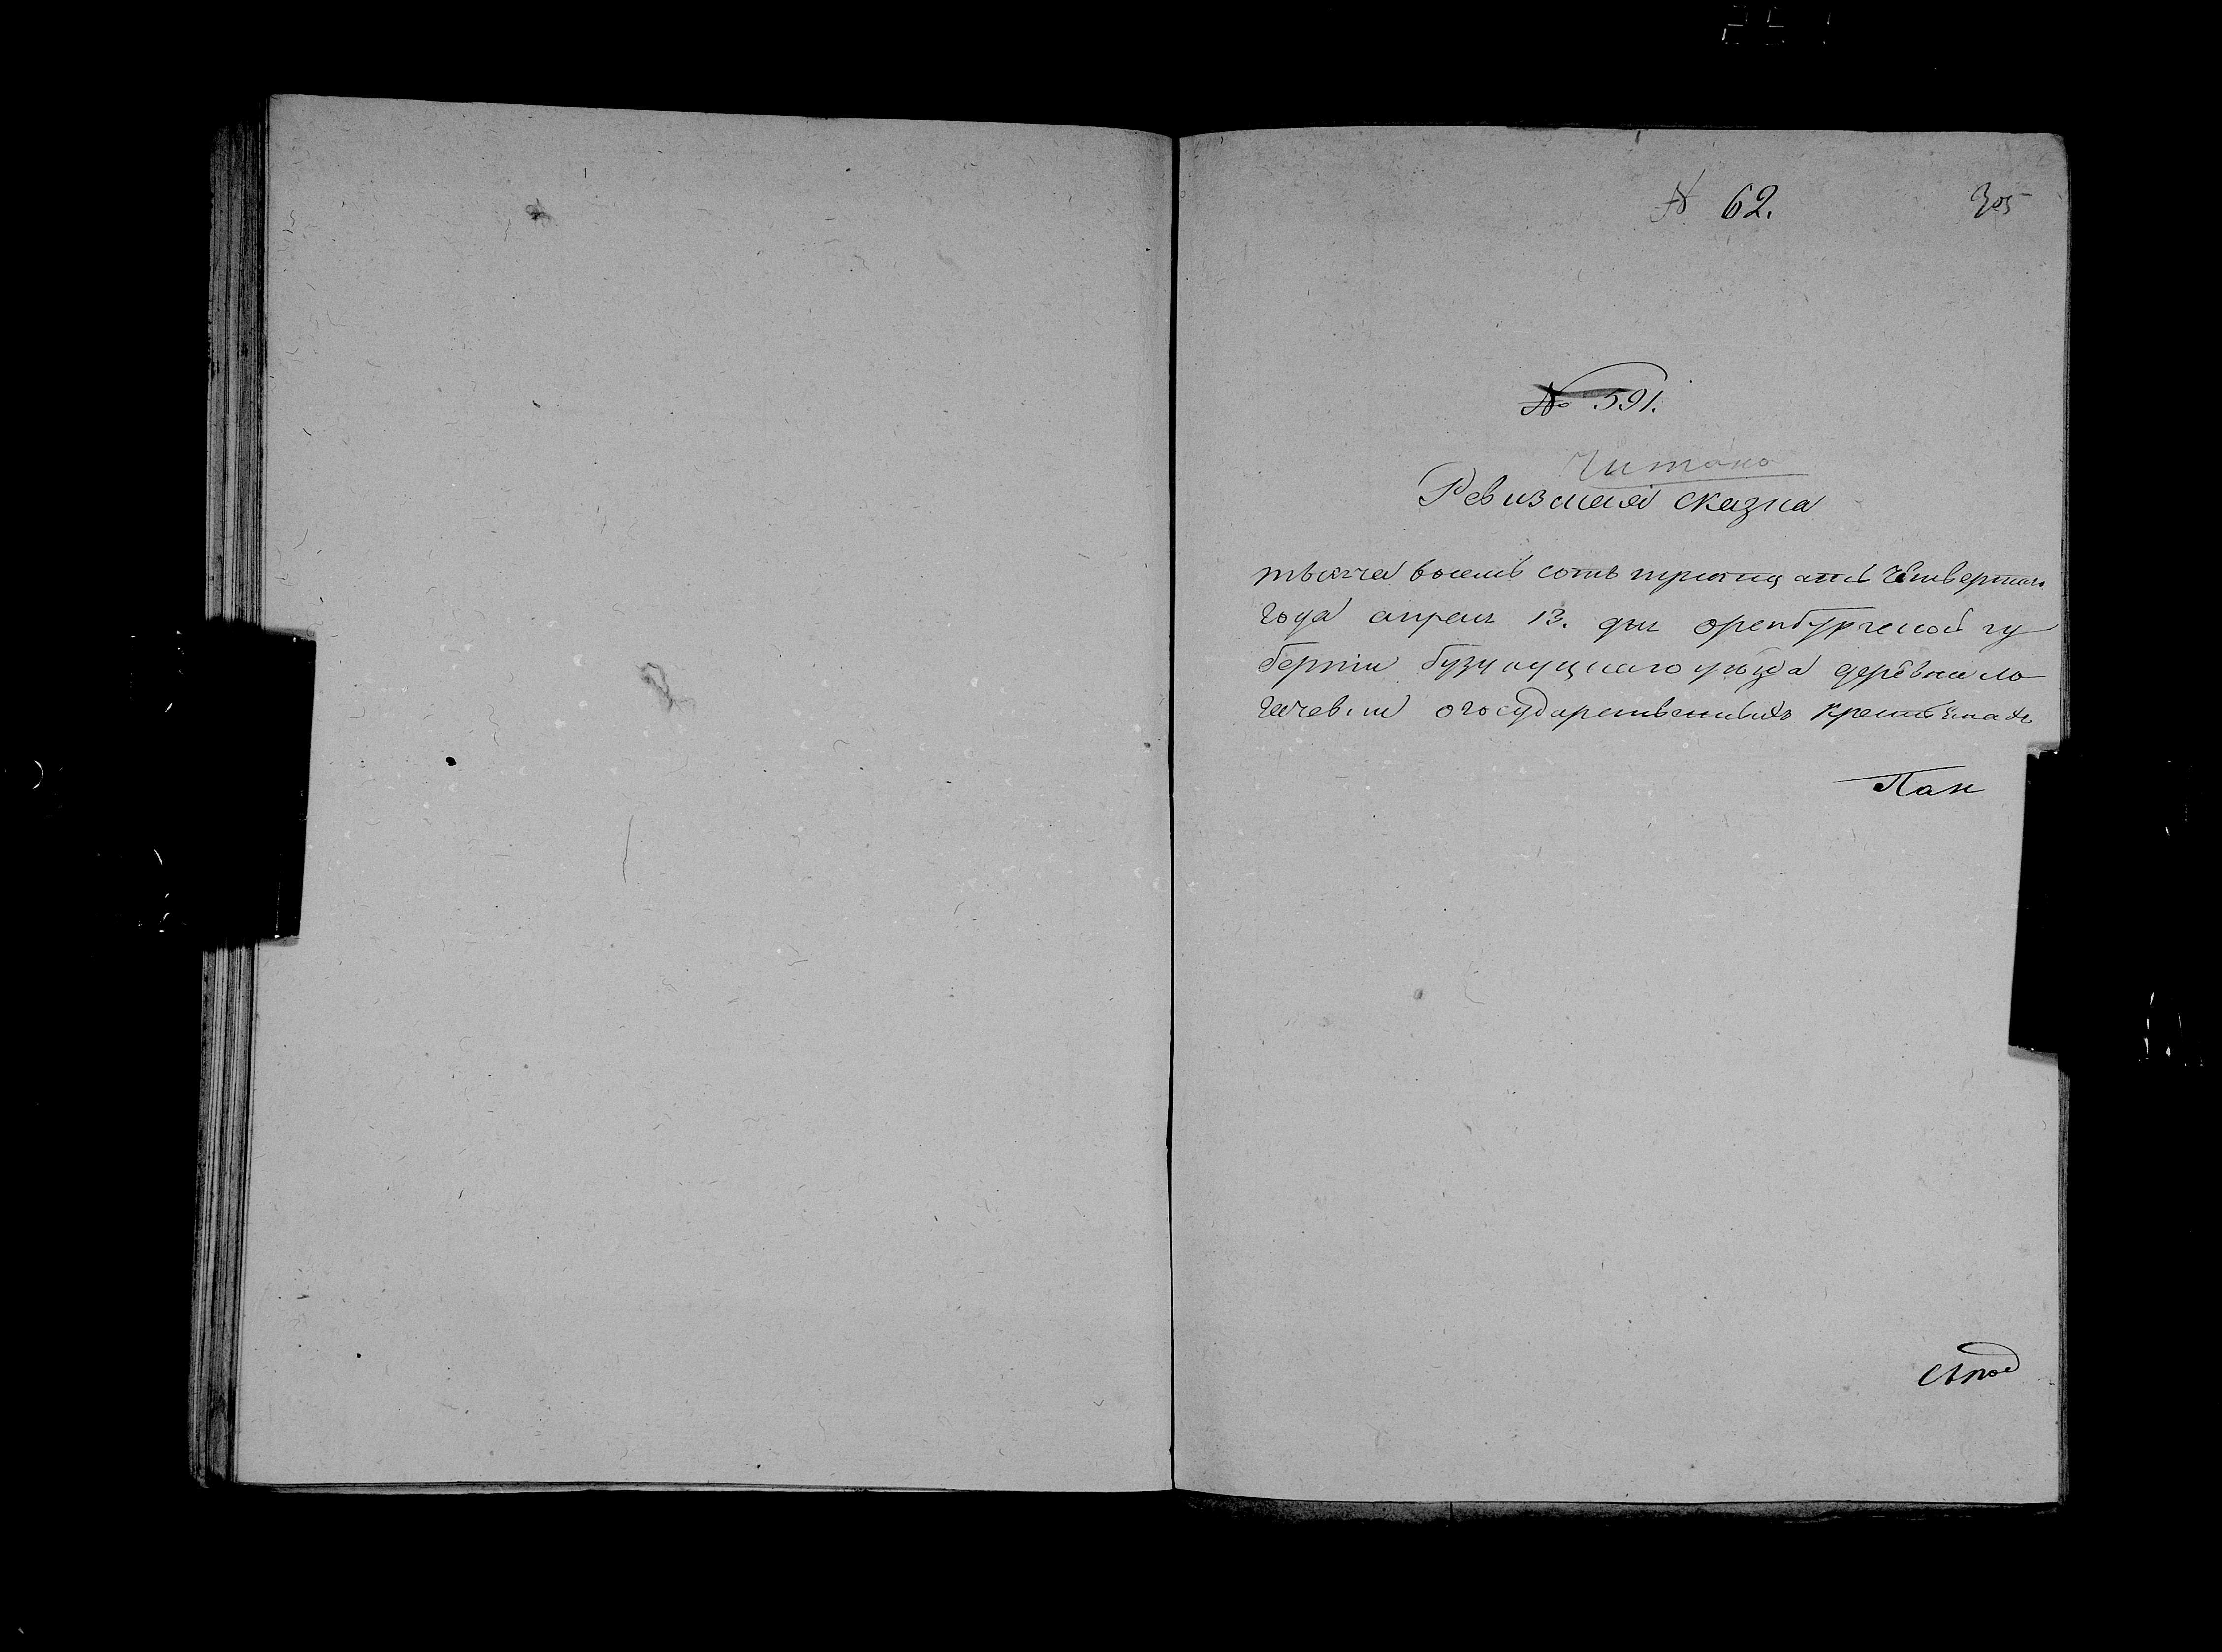 № 62. 305
№ 591.
Читано
Ревизская сказка
тысяча восемь сотъ тритцать четвертаго
года апреля 13. дня оренбургской гу
бернии бузулуцкаго уѣзда деревни ло
гачевки о государственныхъ крестьянахъ